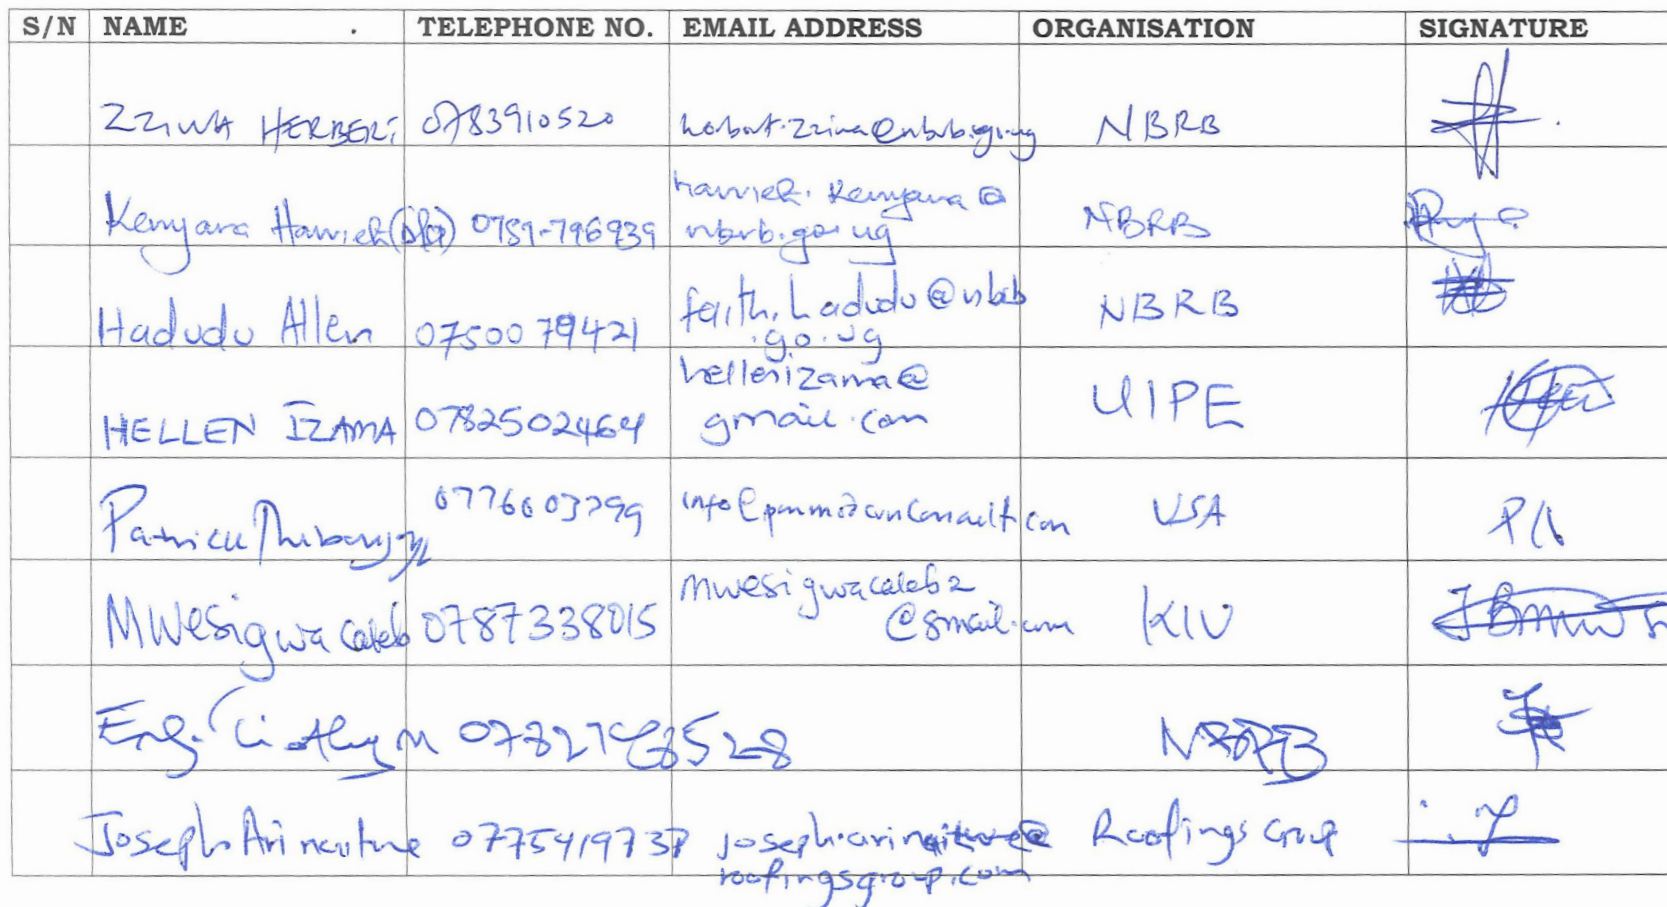 S/N NAME TELEPHONE NO. EMAIL ADDRESS ORGANISATION SIGNATURE
ZZIWA HERBERT 0783910520 herbert.zziwa@nbrb.go.ug NBRB
Kenyana Harriet 0789-796939 harriet.kenyana@
nbrb.go.ug NBRB
Hadudu Allen 0750079421 faith.hadudu@nbrb
.go.ug NBRB
HELLEN IZAMA 0782502464 hellenizama@
gmail.com UIPE
Patrick 0776603799 USA
Mwesigwa Caleb 0787338015 mwesigwacaleb2
@gmail.com KIU
Eng. Timothy M NBRB
Joseph Arinaitwe joseph.arinaitwe@ Roofings Group
roofingsgroup.com